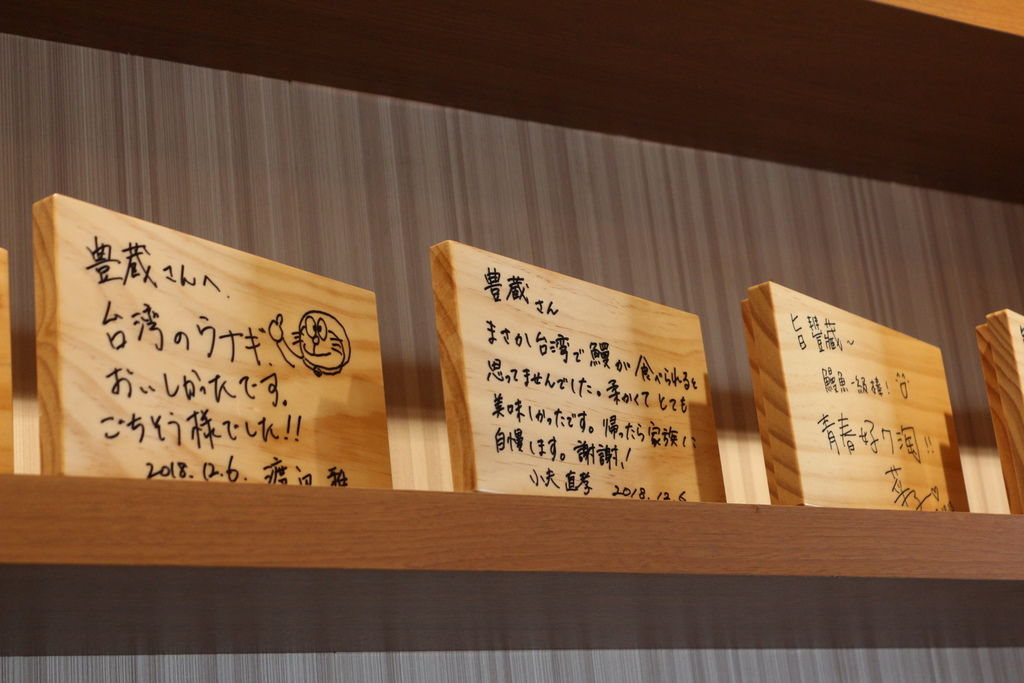 豊蔵さんへ.
台湾のウナギ
おいしかったです。
ごちそう様でした!!
2018.12.6.
豊蔵さん
まさか台湾で鰻が食べられると
思ってませんでした。柔かくてとても
美味しかったです。帰ったら家族に
自慢します。謝謝!
2018.12.6
旨豐藏~
鰻魚一級棒!
青春好7淘!!